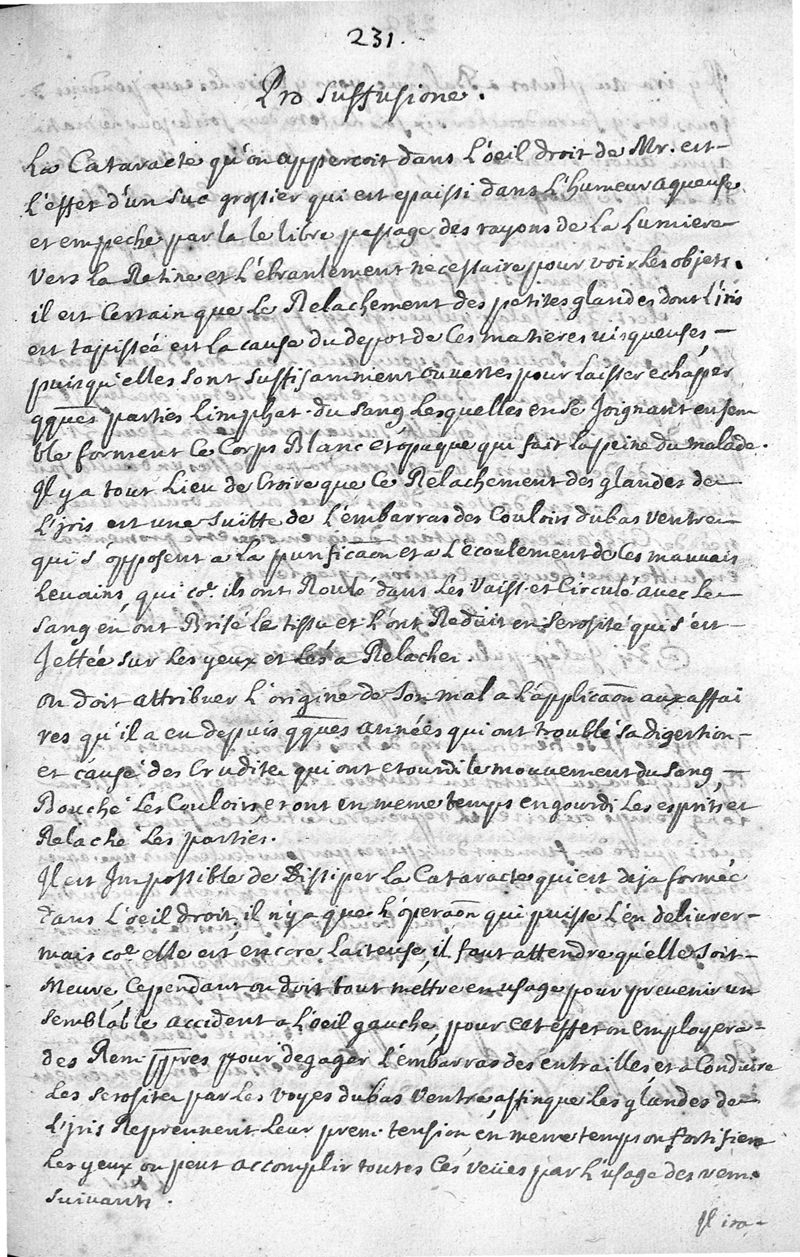 231.
Pro suffusione.
La Cataracte qu'on appercoit dans L'oeil droit de Mr. est
L'effet d'un suc grossier qui est epaissi dans L'humeur aqueuse
et empeche par la le libre passage des rayons de La Lumiere
vers La Retine et L'ébranlement necessaire pour voir Les objets.
il est Certain que Le Relachement des petites glandes dont L'iris
est tapissée est La cause du depot de Ces matieres visqueuses
puisqu'elles sont suffisamment ouvertes pour Laisser echaper
qques parties Limphat. du sang Lesquelles en se Joignant ensem
ble forment Ce Corps Blanc et opaque qui fait La peine du malade.
Il y a tout Lieu de Croire que Ce Relachement des glandes de
L'iris est une suitte de L'embarras des Couloirs du bas ventre
qui s'opposent a La purificaõn et a L'écoulement de Ces mauvais
Levains, qui coe. ils ont Roulé dans Les Vaiss. et Circulé avec Le
sang en ont Brisé Le tissu et L'ont Reduit en serosité qui s'est
Jettée sur Les yeux et Les a Relacher.
on doit attribuer L'origine de son mal a L'applicaõn aux affai
res qu'il a eu depuis qques années qui ont troublé sa digestion
et causé des Crudites qui ont etourdi le mouvement du sang
Bouché Les Couloirs et ont en meme temps engourdi Les esprits et
Relaché Les parties.
Il est Impossible de Dissiper La Cataracte qui est deja formée
dans L'oeil droit, il n'y a que L'operaõn qui puisse L'en delivrer
mais coe. elle est encore Laiteuse, il faut attendre qu'elle soit
Meure Cependant on doit tout mettre en usage pour prevenir un
semblable accident a L'oeil gauche, pour cet effet on employera
des Rem. ppres pour degager L'embarras des entrailles, et a Conduire
Les serosites par Les voyes du bas ventre affin que Les glandes de
L'iris Reprennent Leur prem. tension en meme temps on fortifiera
Les yeux on peut accomplir toutes Ces veües par L'usage des rem.
suivants.
Il ira